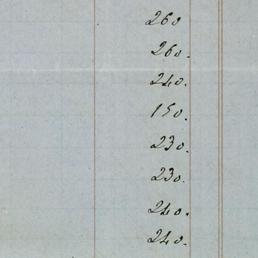 260
260.
240.
150.
230.
230.
240.
240.